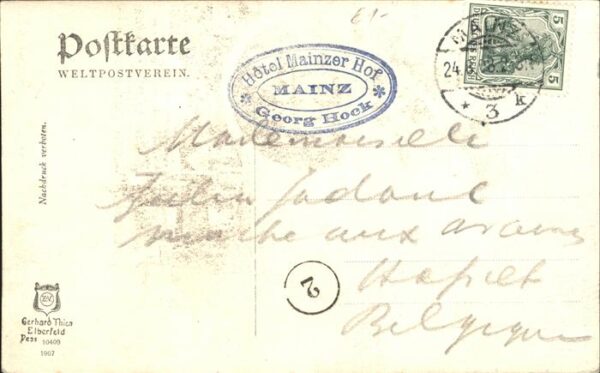 E1-
Postkarte
WELTPOSTVEREIN.
Hôtel Mainzer Hof
MAINZ
Georg Hock
MAINZ
24.8.
* 3 k
5 5
Nachdruck verboten.
Mademoiselle
marche aux
Belgique
2
Gerhard Thien
Elberfeld
Dess 10409
1907